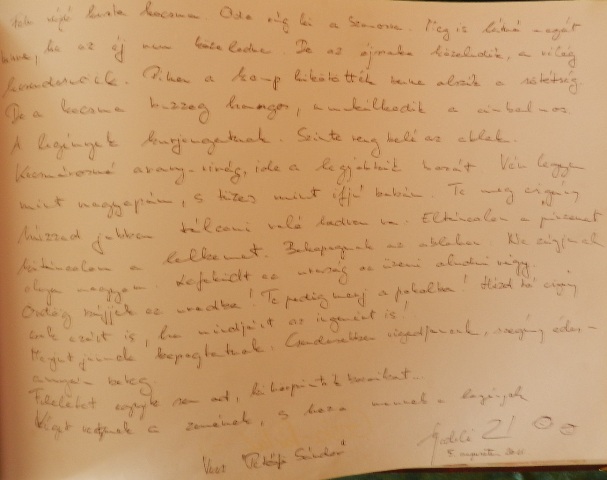 Falu végén kurta kocsma. Oda rúg ki a Szamosra. Meg is látná magát
benne, ha az éj nem közeledne. De az éjszaka közeledik, a világ
lecsendesedik. Pihen a komp kikötötték benne alszik a sötétség.
De a kocsma bezzeg hangos, munkálkodik a cimbalmos
A legények kurjongatnak. Szinte reng belé az ablak.
Kocsmárosné arany-virág, ide a legjobbik borát Vén legyen
mint nagyapám, s tüzes mint ifjú babám. Te meg cigány
húzzad jobban táncolni való kedvem van. Eltáncolom a pénzemet
kitáncolom a lelkemet. Bekopognak az ablakon. Ne zúgjanak
olyan nagyon. Lefeküdt az uraság az üzeni aludni vágy.
Ördög bújjék az uradba! Te pedig menj a pokolba! Húzd rá cigány
csak azért is, ha mindjárt az ingemért is!
Megint jönnek kopogtatnak. Csendesebben vigadjanak, szegény édes-
anyám beteg.
Feleletet egyik sem ad, kihörpintik boraikat...
Véget vetnek a zenének, s haza mennek a legények
Vers "Petőfi Sándor"
21
5. augusztus